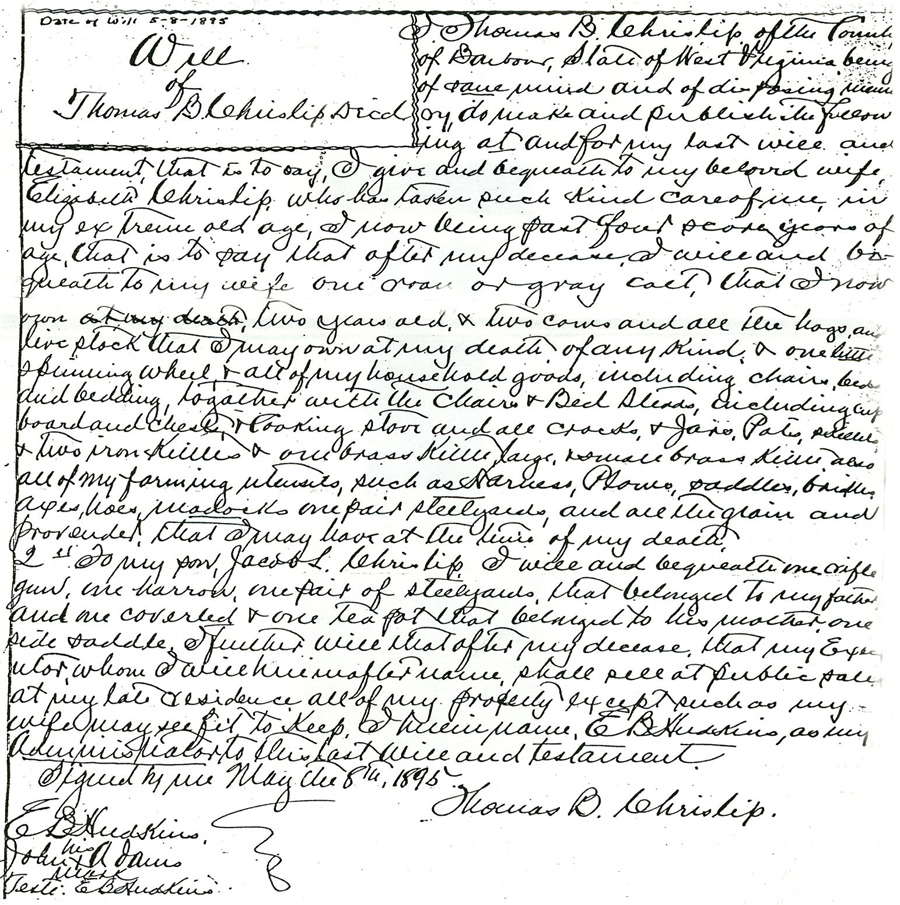 Date of Will 5-8-1895
Will
of
Thomas B. Chrislip Decd
I Thomas B. Chrislip of the County
of Barbour, State of West Virginia being
of sane mind and of disposing mem
ory, do make and publish the follow
ing at and for my last will and
testament, that is to say, I give and bequeath to my beloved wife,
Elizabeth Chrislip, who has taken such kind care of me, in
my extreme old age, I now being past four score years of
age, that is to say that after my decease, I will and be-
queath to my wife one roan or gray colt, that I now
own at my death, two years old, & two cows and all the hogs, and
live stock that I may own at my death of any kind, & one little
spinning wheel, & all of my household goods, including chairs, beds
and bedding, together with the Chairs & Bed Steads, including cup
board and chest, & Cooking stove and all crocks, & Jars, Pots,
& two iron Kittles & one brass Kittle, large, & small brass Kittle also
all of my farming utensils, such as Harness, Plows, saddles, bridles
axes, hoes, madocks one pair steelyards, and all the grain and
provender, that I may have at the time of my death.
2nd To my son, Jacob S. Chrislip, I will and bequeath one rifle
gun, one harrow, one pair of steelyards, that belonged to my father
and one coverled & one tea pot that belonged to his mother, one
side saddle, I further will that after my decease, that my Exec
utor, whom I will hereinafter name, shall sell at public sale
at my late residence all of my property except such as my
wife may see fit to keep, I herein name, E B Hudkins, as my
Administrator to this last will and testament.
Signed by me May the 8th, 1895.
Thomas B. Chrislip.
E B Hudkins,
his
John x Adams
mark
Teste: E B Hudkins.